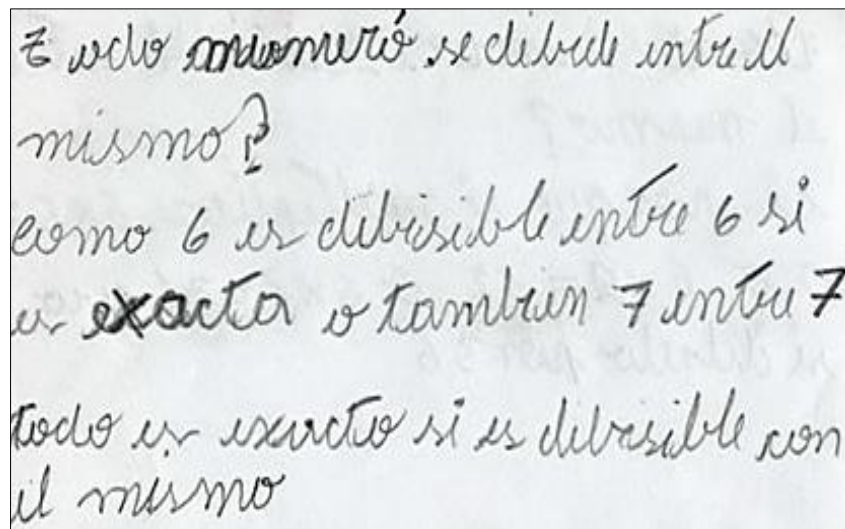 todo numeró se dibide entre el
mismo?
como 6 es dibisible entre 6 si
es exacta o tambien 7 entre 7
todo es exacto si es dibisible con
el mismo